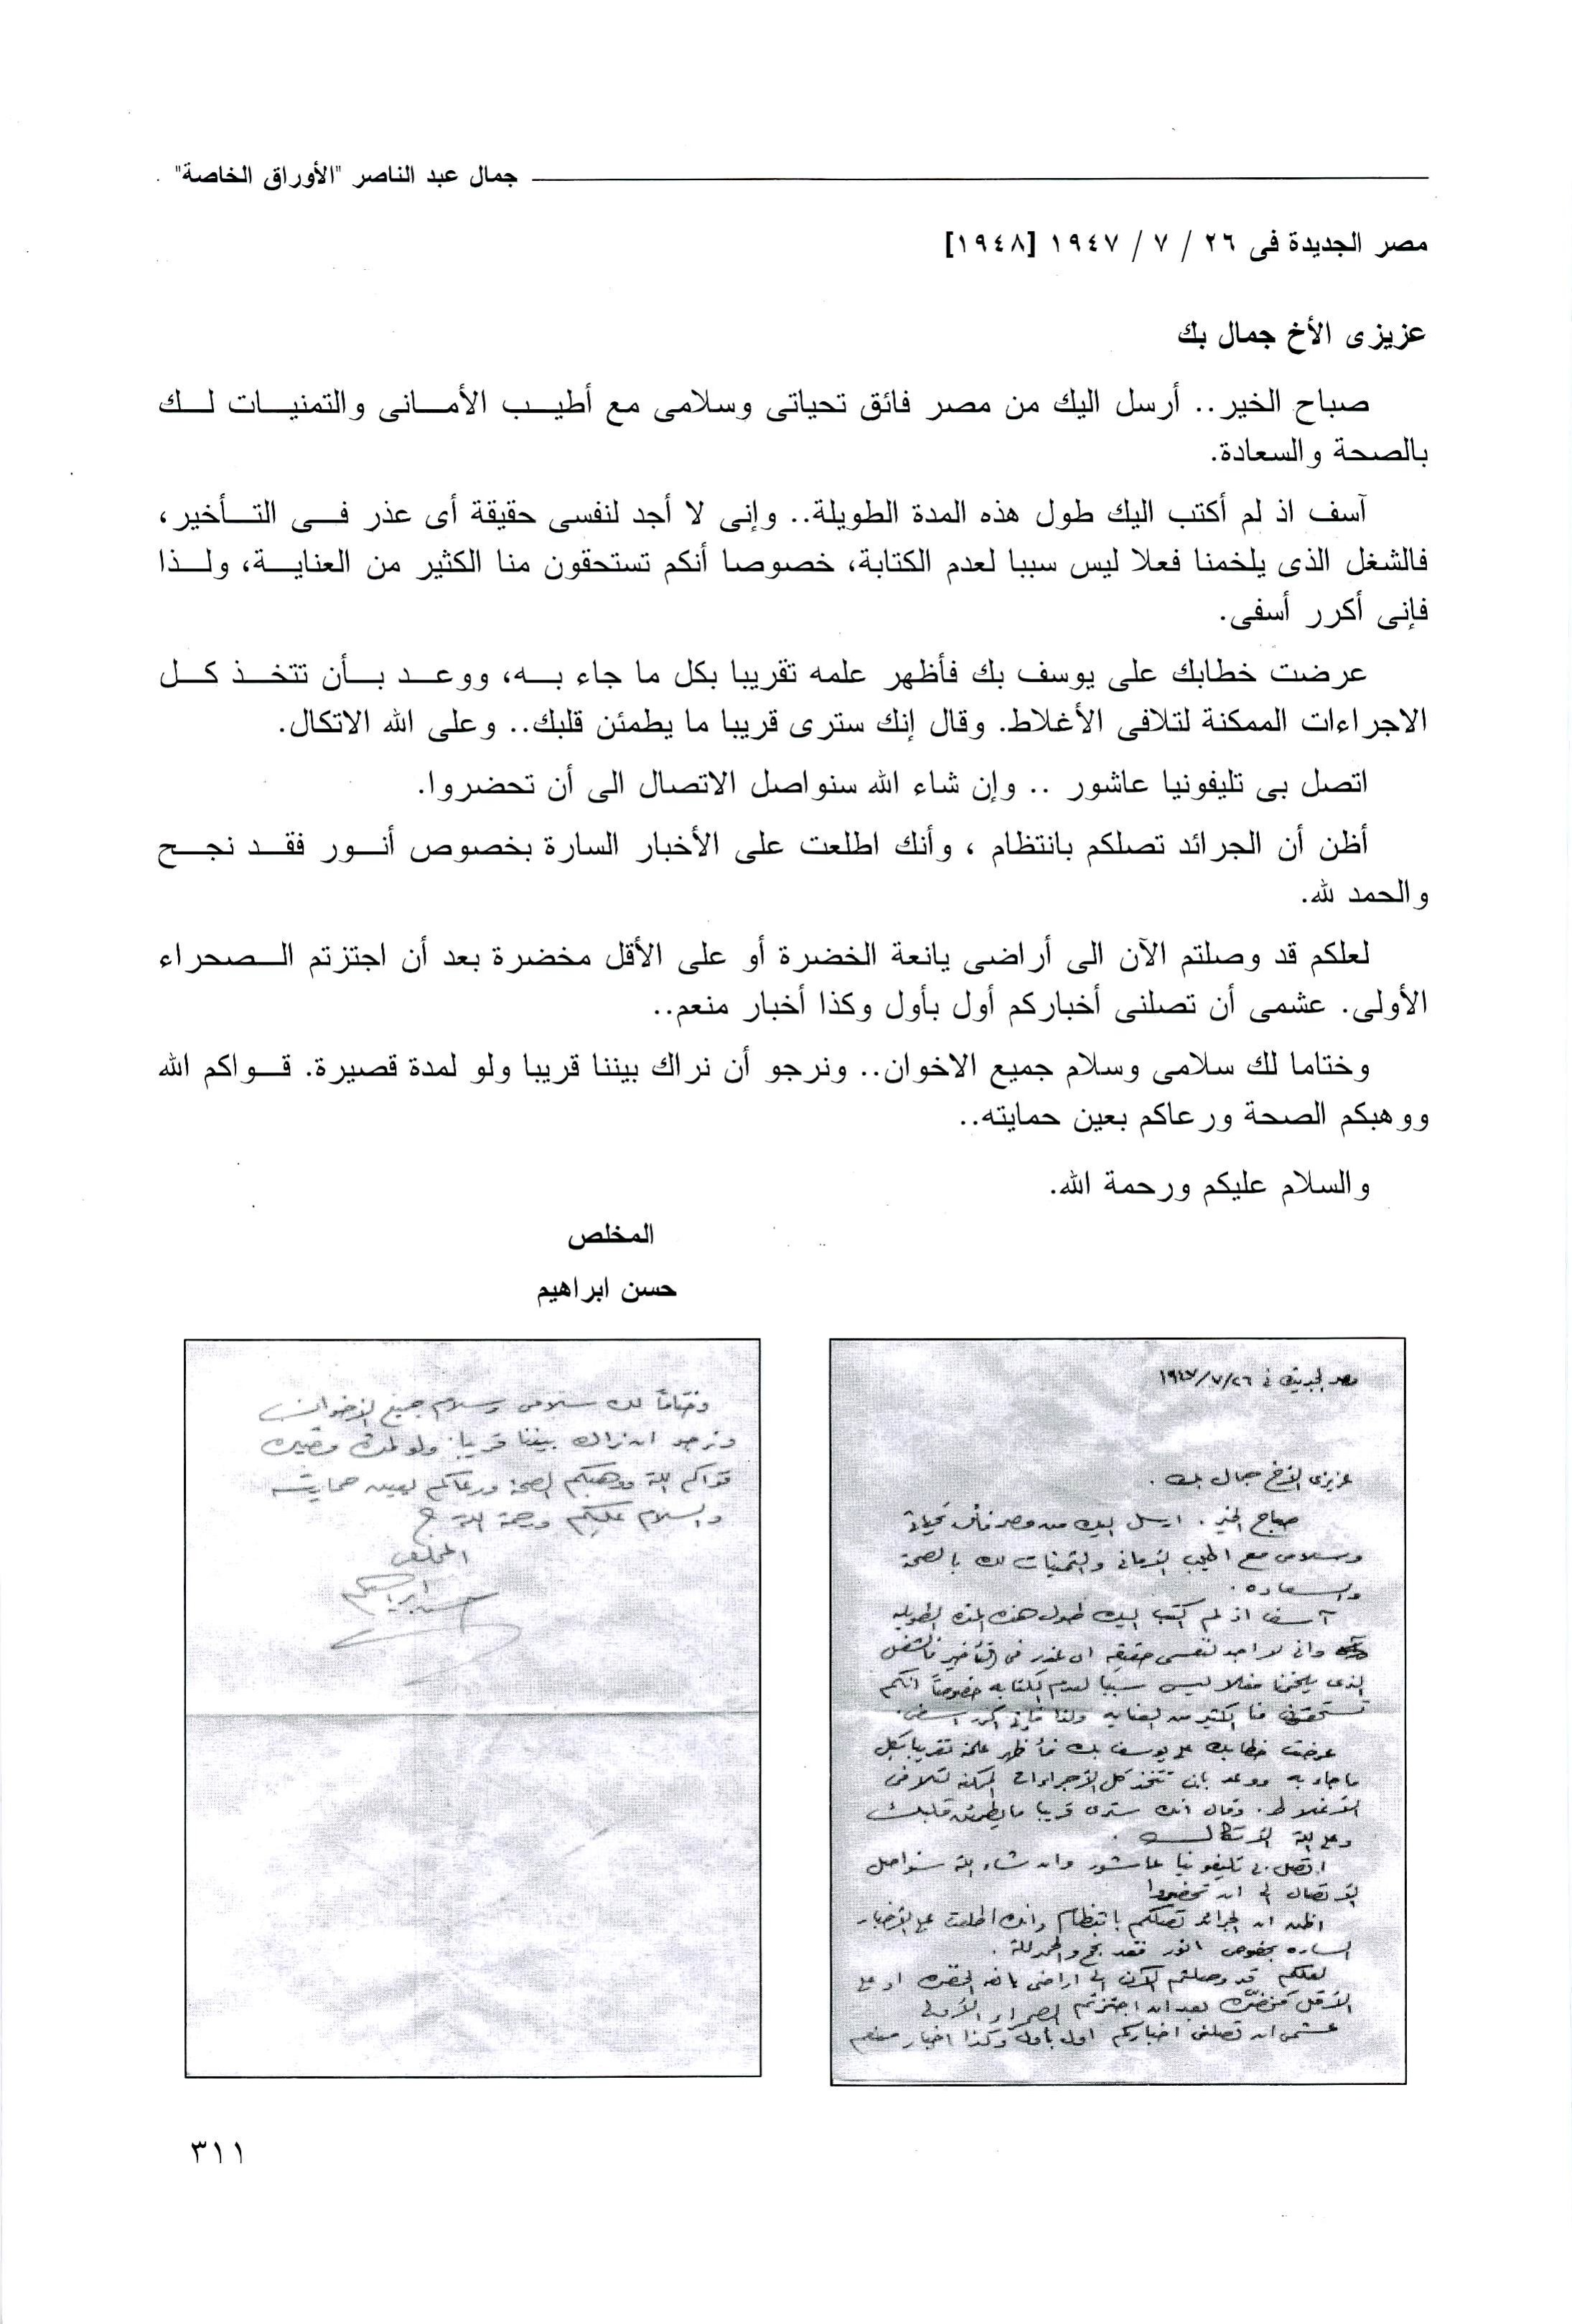 جمال عبد الناصر "الأوراق الخاصة"
مصر الجديدة فى ٢٦ / ٧ / ١٩٤٧ [١٩٤٨]
عزيزى الأخ جمال بك
صباح الخير.. أرسل اليك من مصر فائق تحياتى وسلامى مع أطيب الأمانى والتمنيات لك
بالصحة والسعادة.
آسف اذ لم أكتب اليك طول هذه المدة الطويلة.. وإنى لا أجد لنفسى حقيقة أى عذر فى التأخير،
فالشغل الذى يلخمنا فعلا ليس سببا لعدم الكتابة، خصوصا أنكم تستحقون منا الكثير من العناية، ولذا
فإنى أكرر أسفى.
عرضت خطابك على يوسف بك فأظهر علمه تقريبا بكل ما جاء به، ووعد بأن تتخذ كل
الاجراءات الممكنة لتلافى الأغلاط. وقال إنك سترى قريبا ما يطمئن قلبك.. وعلى الله الاتكال.
اتصل بى تليفونيا عاشور .. وإن شاء الله سنواصل الاتصال الى أن تحضروا.
أظن أن الجرائد تصلكم بانتظام ، وأنك اطلعت على الأخبار السارة بخصوص أنور فقد نجح
والحمد لله.
لعلكم قد وصلتم الآن الى أراضى يانعة الخضرة أو على الأقل مخضرة بعد أن اجتزتم الصحراء
الأولى. عشمى أن تصلنى أخباركم أول بأول وكذا أخبار منعم..
وختاما لك سلامى وسلام جميع الاخوان.. ونرجو أن نراك بيننا قريبا ولو لمدة قصيرة. قواكم الله
ووهبكم الصحة ورعاكم بعين حمايته..
والسلام عليكم ورحمة الله.
المخلص
حسن ابراهيم
مصر الجديدة فى ٢٦/٧/١٩٤٧
عزيزى الأخ جمال بك .
صباح الخير . ارسل اليك من مصر فائق تحياتى
وسلامى مع اطيب الأمانى والتمنيات لك بالصحة
والسعاده .
آسف اذ لم اكتب اليك طول هذه المده الطويله
وانى لا اجد لنفسى حقيقه اى عذر فى التأخير فالشغل
الذى يلخمنا فعلا ليس سببا لعدم الكتابه خصوصاً انكم
تستحقون منا الكثير من العنايه ولذا فإنى اكرر اسفى .
عرضت خطابك على يوسف بك فأظهر علمه تقريبا بكل
ما جاء به ووعد بان تتخذ كل الأجراءات الممكنه لتلافى
الأغلاط . وقال انك سترى قريبا ما يطمئن قلبك
وعلى الله الأتكال .
اتصل بى تليفونيا عاشور وان شاء الله سنواصل
الأتصال الى ان تحضروا
اظن ان الجرائد تصلكم بانتظام وانك اطلعت على الأخبار
الساره بخصوص انور فقد نجح والحمد لله .
لعلكم قد وصلتم الآن الى اراضى يانعه الخضره او على
الأقل مخضره بعد ان اجتزتم الصحراء الأولى
عشمى ان تصلنى اخباركم اول بأول وكذا اخبار منعم
وختاماً لك سلامى وسلام جميع الأخوان
ونرجو ان نراك بيننا قريبا ولو لمده قصيره
قواكم الله ووهبكم الصحة ورعاكم بعين حمايته
والسلام عليكم ورحمة الله
المخلص
حسن ابراهيم
٣١١